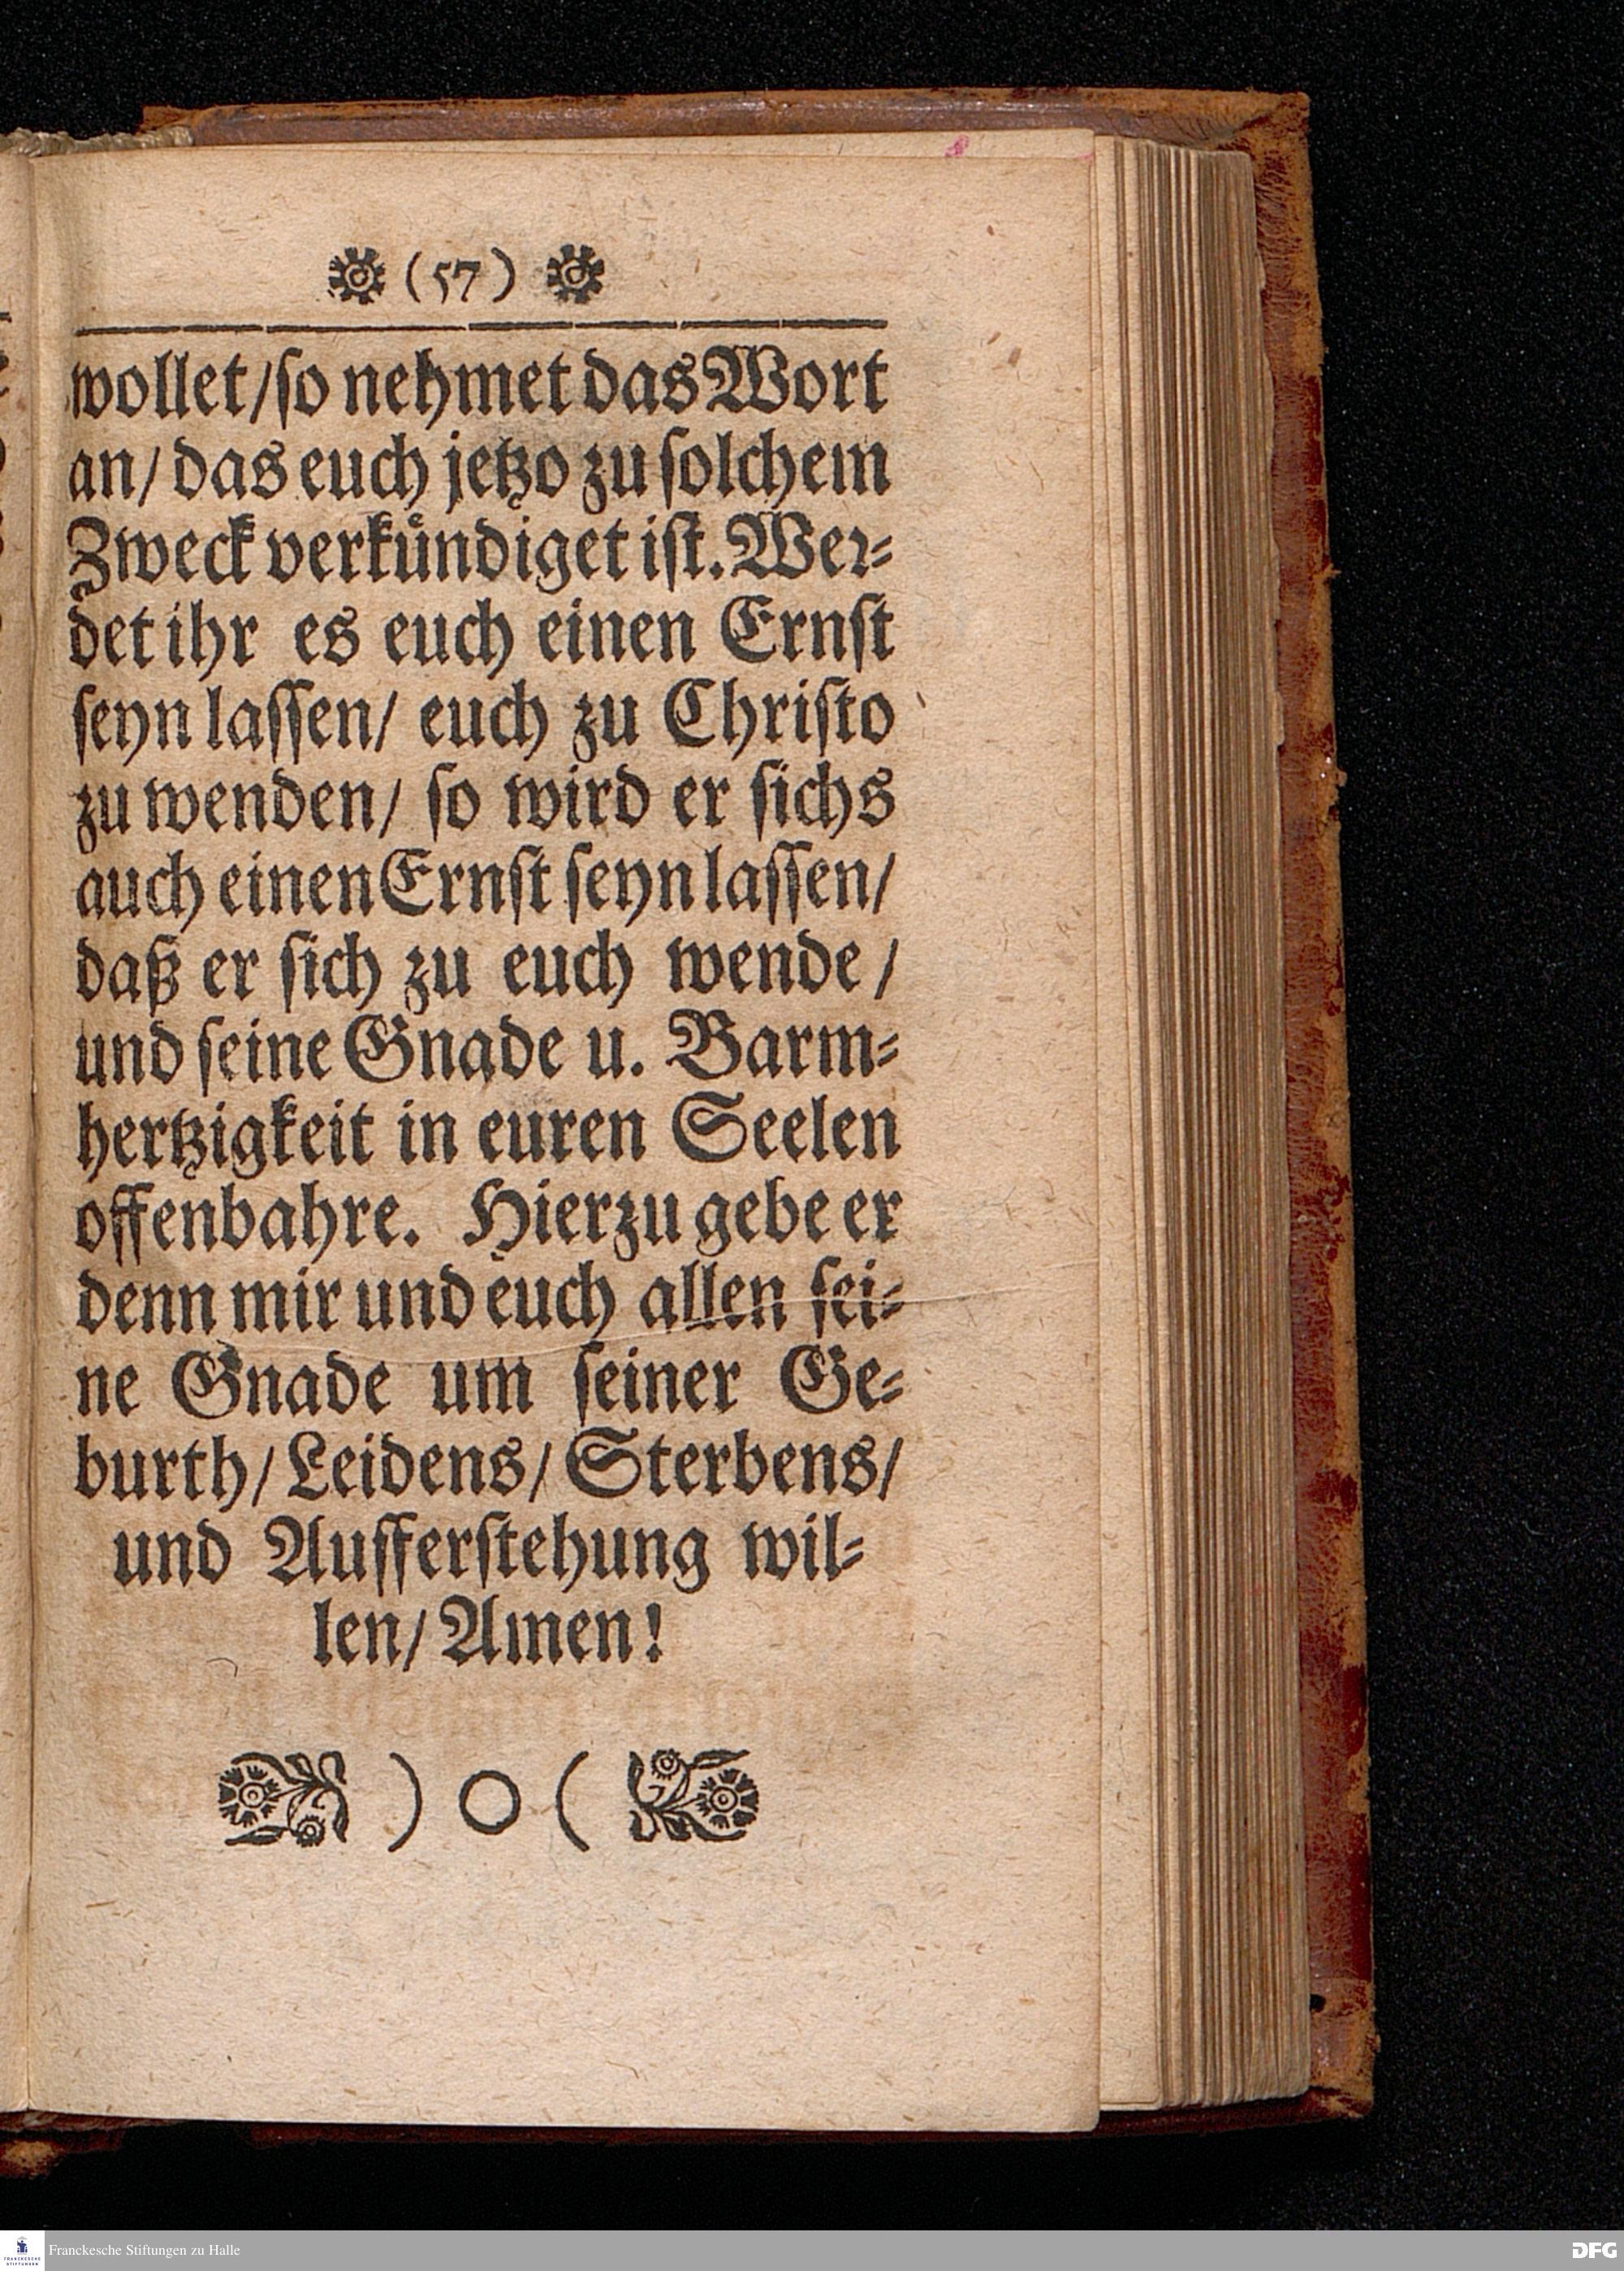 (57)
wollet/so nehmet das Wort
an/ das euch jetzo zu solchem
Zweck verkuͤndiget ist. Wer-
det ihr es euch einen Ernst
seyn lassen/ euch zu Christo
zu wenden/ so wird er sichs
auch einen Ernst seyn lassen/
daß er sich zu euch wende/
und seine Gnade u. Barm-
hertzigkeit in euren Seelen
offenbahre. Hierzu gebe er
denn mir und euch allen sei-
ne Gnade um seiner Ge-
burth/ Leidens/ Sterbens/
und Aufferstehung wil-
len/ Amen!
) O (
Franckesche Stiftungen zu Halle
FRANCKESCHE
STIFTUNGEN
DFG